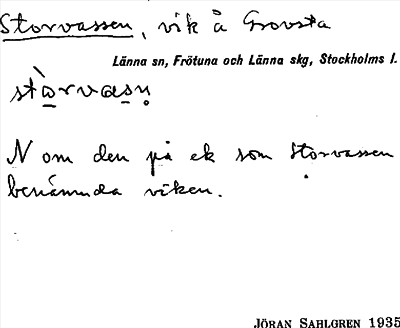 Storvassen, vik å Grovsta
Länna sn, Frötuna och Länna skg, Stockholms l.
N om den på ek som Storvassen
benämnda viken.
JÖRAN SAHLGREN 1935